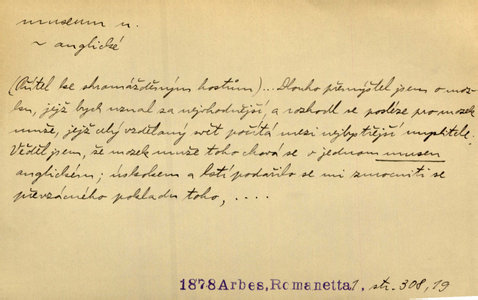 museum n.
~ anglické
(Přítel ke shromážděným hostům)... Dlouho přemýšlel jsem o moz-
ku, jejž bych uznal za nejvhodnější, a rozhodl se posléze pro mozek
muže, jejž celý vzdělaný svět počítá mezi nejbystřejší myslitele.
Věděl jsem, že mozek muže toho chová se v jednom museu
anglickém; úskokem a lstí podařilo se mi zmocniti se
převzácného pokladu toho, ....
1878 Arbes, Romanetta 1. str. 308, 19